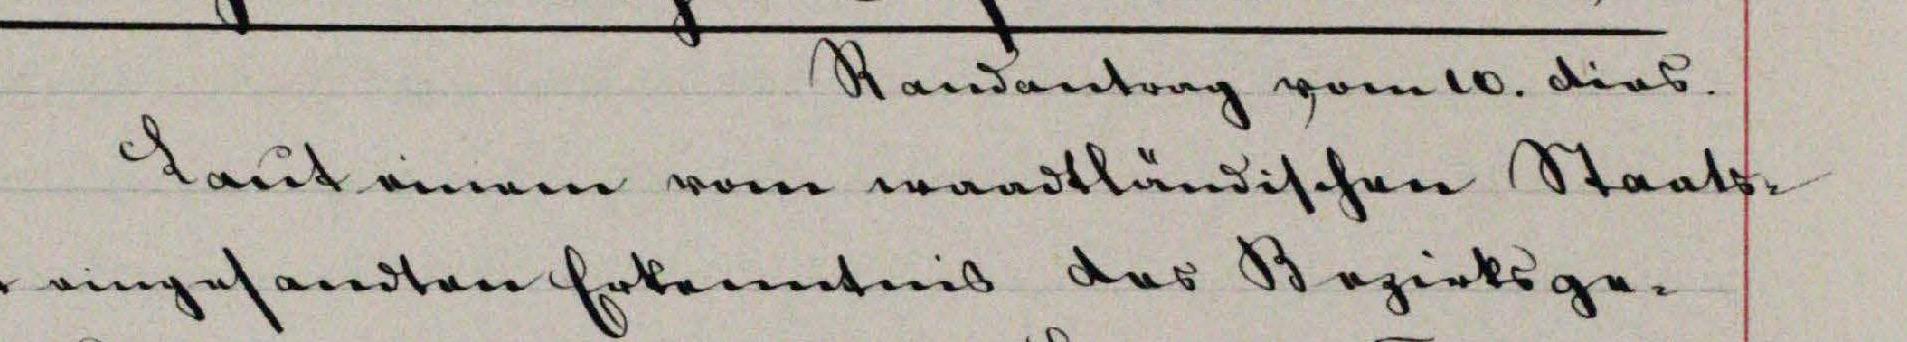 Randantrag vom 10. dies.
Laut einem vom waadtländischen Staats-
eingesandten Erkenntnis des Bezirksge-